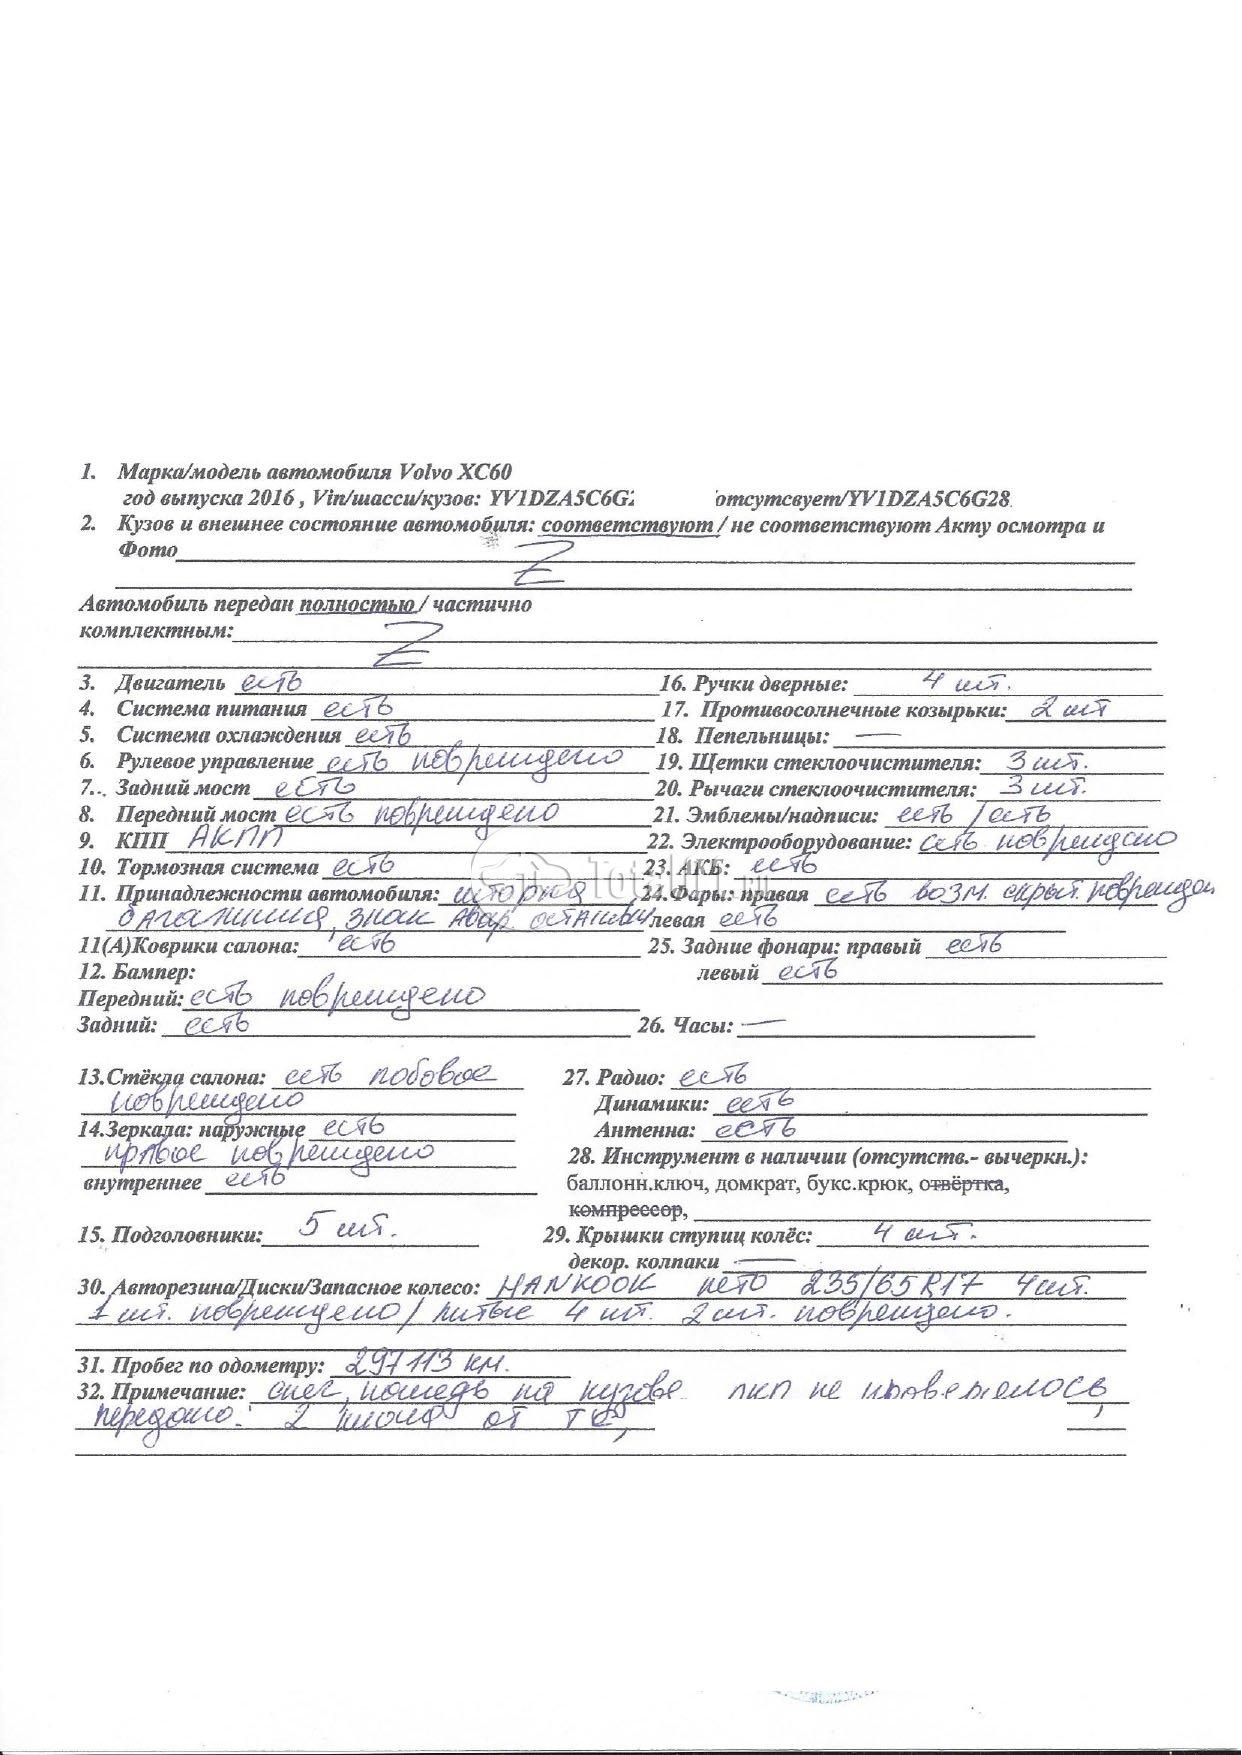 1. Марка/модель автомобиля Volvo XC60
год выпуска 2016 , Vin/шасси/кузов: YV1DZA5C6G2 отсутсвует/YV1DZA5C6G28
2. Кузов и внешнее состояние автомобиля: соответствуют / не соответствуют Акту осмотра и
Фото Z
Автомобиль передан полностью / частично
комплектным: Z
3. Двигатель есть 16. Ручки дверные: 4 шт.
4. Система питания есть 17. Противосолнечные козырьки: 2 шт
5. Система охлаждения есть 18. Пепельницы: —
6. Рулевое управление есть повреждено 19. Щетки стеклоочистителя: 3 шт.
7.. Задний мост есть 20. Рычаги стеклоочистителя: 3 шт.
8. Передний мост есть повреждено 21. Эмблемы/надписи: есть / есть
9. КПП АКПП 22. Электрооборудование: есть повреждено
10. Тормозная система есть 23. АКБ: есть
11. Принадлежности автомобиля: шторка 24.Фары: правая есть возм. скрыт. поврежден
багажника, знак авар остановки левая есть
11(А)Коврики салона: есть 25. Задние фонари: правый есть
12. Бампер: левый есть
Передний: есть повреждено
Задний: есть 26. Часы: —
13.Стёкла салона: есть лобовое 27. Радио: есть
повреждено Динамики: есть
14.Зеркала: наружные есть Антенна: есть
правое повреждено 28. Инструмент в наличии (отсутств.- вычеркн.):
внутреннее есть баллонн.ключ, домкрат, букс.крюк, отвёртка,
компрессор,
15. Подголовники: 5 шт. 29. Крышки ступиц колёс: 4 шт.
декор. колпаки —
30. Авторезина/Диски/Запасное колесо: HANKOOK лето 235/65 R17 4шт.
1 шт. повреждено / литые 4 шт. 2 шт. повреждено.
31. Пробег по одометру: 297113 км.
32. Примечание: снег, на кузове лкп не проверялось
передано 2 ключа от ТС,